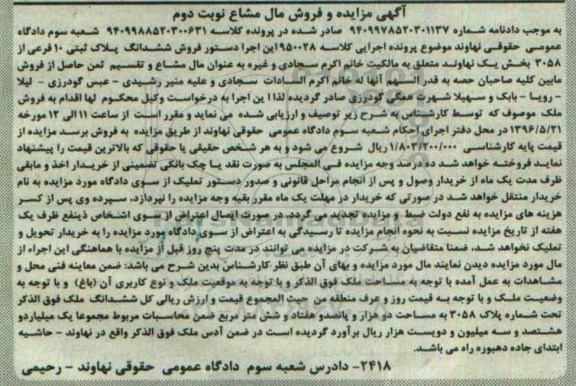 آگهی مزایده و فروش مال مشاع نوبت دوم
به موجب دادنامه شماره ۹۴۰۹۹۷۸۵۲۰۳۰۱۱۳۷ صادره در پرونده کلاسه ۹۴۰۹۹۸۸۵۲۰۳۰۰۶۳۱ شعبه سوم دادگاه
عمومی حقوقی نهاوند موضوع پرونده اجرایی کلاسه ۹۵۰۰۲۸ این اجرا دستور فروش ششدانگ پلاک ثبتی ۱۰ فرعی از
۳۰۵۸ بخش یک نهاوند متعلق به مالکیت خانم اکرم سجادی و غیره به عنوان مال مشاع و تقسیم ثمن حاصل از فروش
مابین کلیه صاحبان حصه به قدر السهم آنها له خانم اکرم السادات سجادی و علیه منیر رشیدی – عباس گودرزی – لیلا
– رویا – بابک و سهیلا شهرت همگی گودرزی صادر گردیده لذا این اجرا به درخواست وکیل محکوم لها اقدام به فروش
ملک موصوف که توسط کارشناس به شرح زیر توصیف و ارزیابی شده می نماید و مقرر است از ساعت ۱۱ الی ۱۲ مورخه
۱۳۹۶/۵/۲۱ در محل دفتر اجرای احکام شعبه سوم دادگاه عمومی حقوقی نهاوند از طریق مزایده به فروش برسد مزایده از
قیمت پایه کارشناسی ۱/۸۰۳/۲۰۰/۰۰۰ ریال شروع می شود و به هر شخص حقیقی یا حقوقی که بالاترین قیمت را پیشنهاد
نماید فروخته خواهد شد ده درصد وجه مزایده فی المجلس به صورت نقد یا چک بانکی تضمینی از خریدار اخذ و مابقی
ظرف مدت یک ماه از خریدار وصول و پس از انجام مراحل قانونی و صدور دستور تملیک از سوی دادگاه مورد مزایده به نام
خریدار منتقل خواهد شد در صورتی که خریدار در مهلت یک ماه مقرر بقیه وجه مزایده را نپردازد، سپرده وی پس از کسر
هزینه های مزایده به نفع دولت ضبط و مزایده تجدید می گردد. در صورت ایصال اعتراض از سوی اشخاص ذینفع ظرف یک
هفته از تاریخ مزایده نسبت به نحوه انجام مزایده تا رسیدگی به اعتراض از سوی دادگاه مورد مزایده را به خریدار تحویل و
تملیک نخواهد شد، ضمنا متقاضیان به شرکت در مزایده می توانند در مدت پنج روز قبل از مزایده با هماهنگی این اجراء از
مال مورد مزایده دیدن نمایند مال مورد مزایده و بهای آن طبق نظر کارشناس بدین شرح می باشد: ضمن معاینه فنی محل و
مشاهدات به عمل آمده با توجه به مساحت ملک فوق الذکر و با توجه به موقعیت ملک و نوع کاربری آن (باغ) و با توجه به
وضعیت ملک و با توجه به قیمت روز و عرف منطقه من حیث المجموع قیمت و ارزش ریالی کل ششدانگ ملک فوق الذکر
تحت شماره پلاک ۳۰۵۸ به مساحت دو هزار و پانصدو هفتاد و شش متر مربع ضمن محاسبات مربوط مجموعا یک میلیاردو
هشتصد و سه میلیون و دویست هزار ریال برآورد گردیده است در ضمن آدس ملک فوق الذکر واقع در نهاوند – حاشیه
ابتدای جاده دهبوره راه می باشد.
۲۴۱۸- دادرس شعبه سوم دادگاه عمومی حقوقی نهاوند – رحیمی